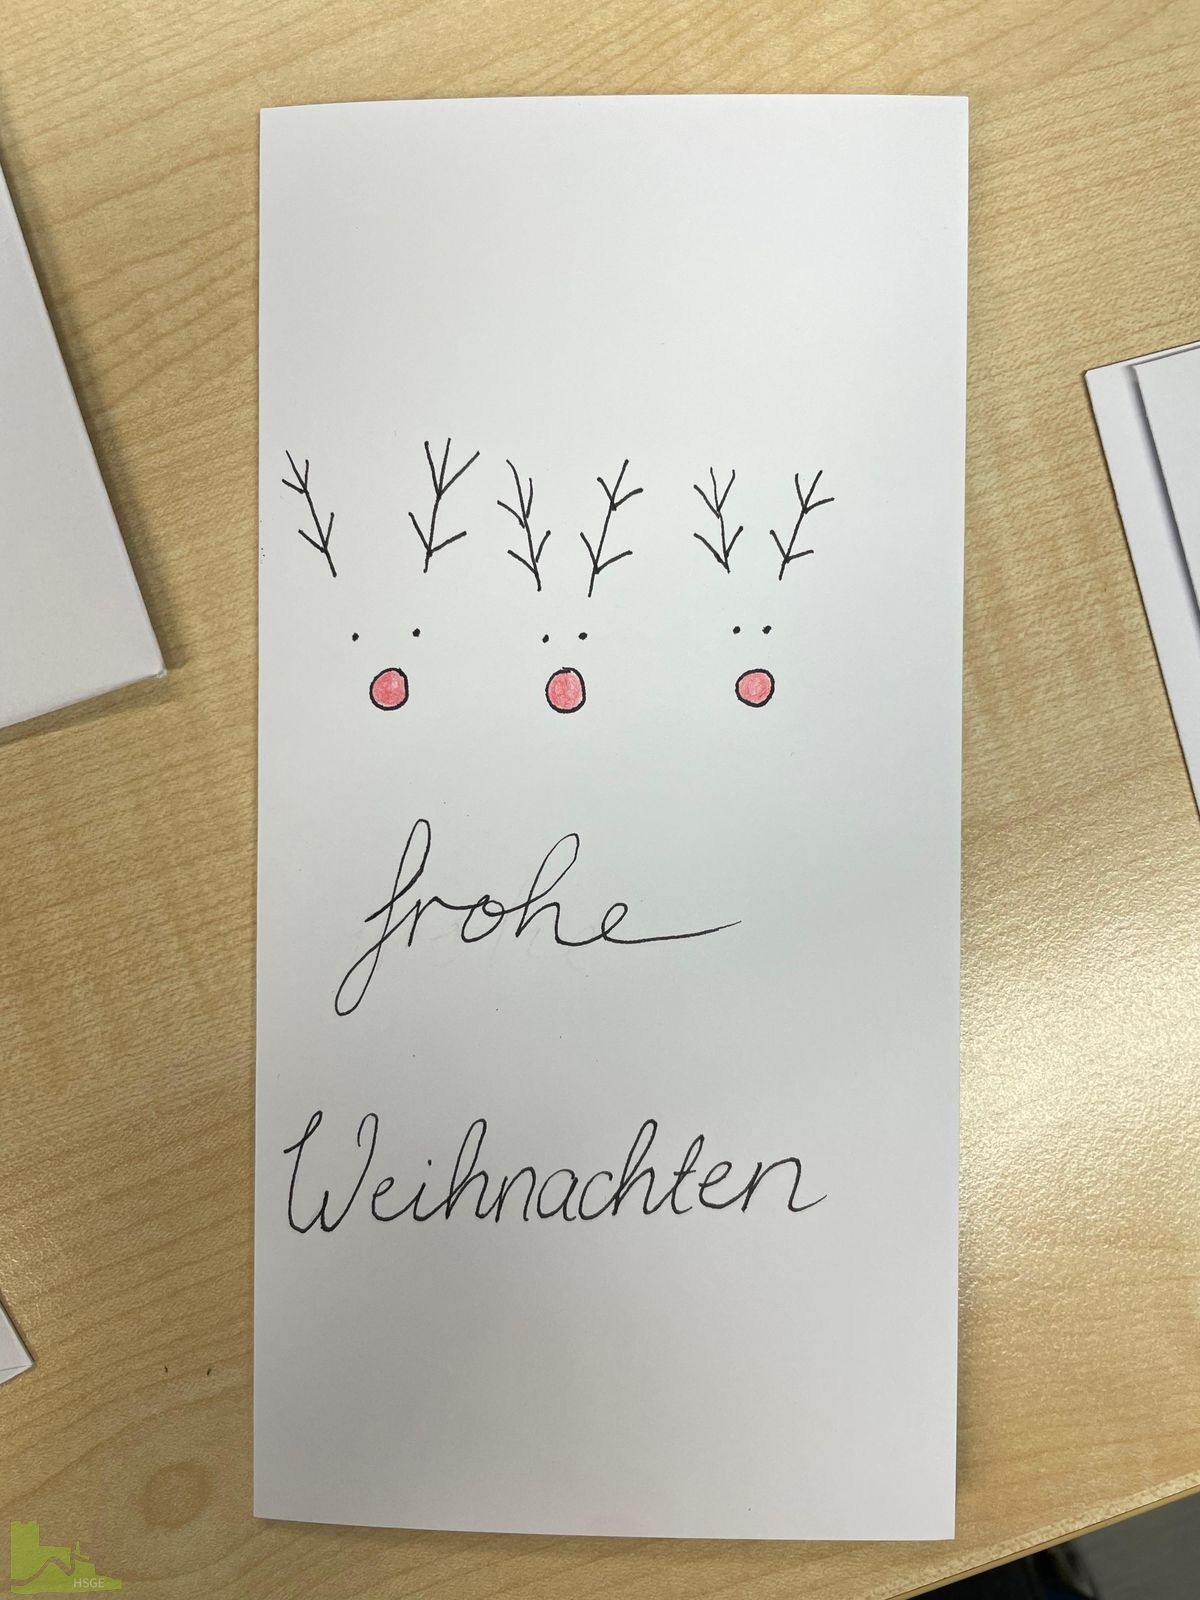 frohe
Weihnachten
HSGE